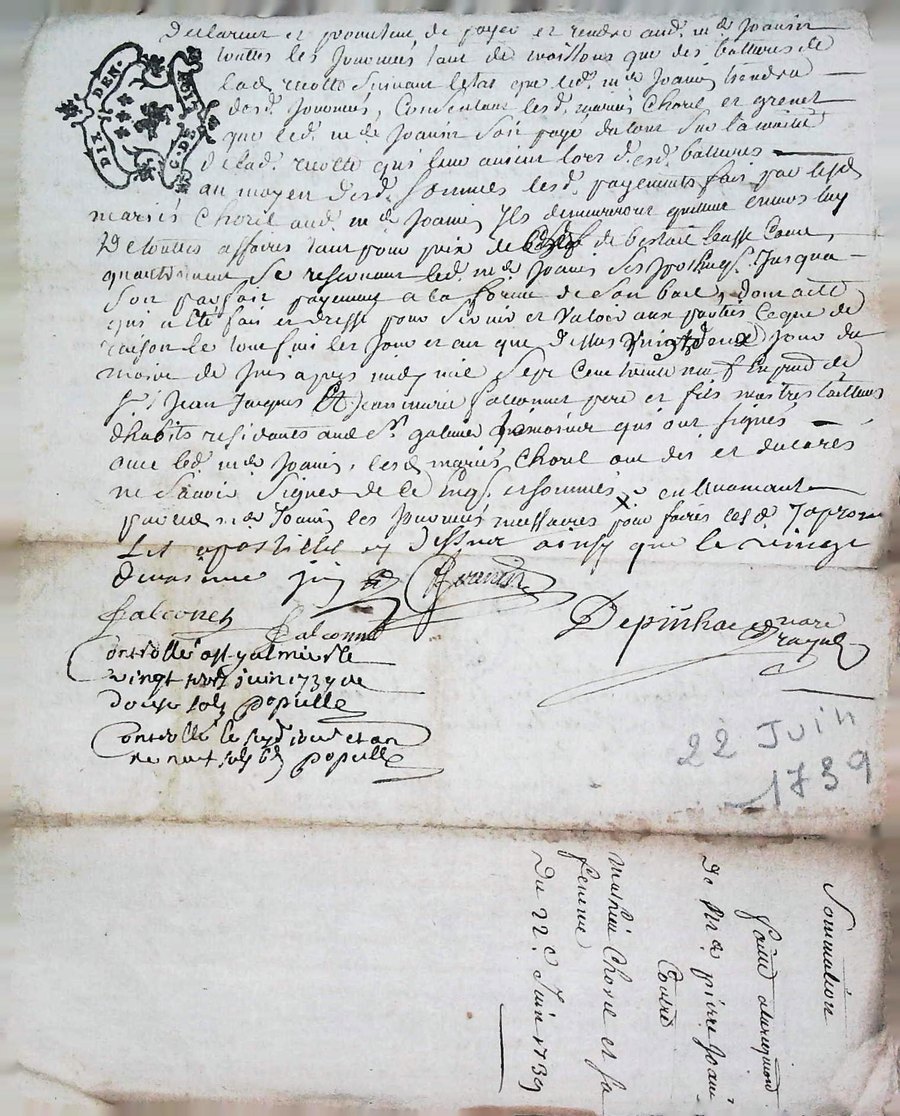 DIX DEN. G. DE
Declarent et promettent de payer et rendre aud. md Joanin
touttes les Journées tant de moissons que des battures de
lad. recolte suivant lestat que led. md Joanin tiendra
desd. Journées, Consentant lesd. mariés Chorel et
que led. md Joanin soit payé du tout sur la moitié
de lad. recolte qui leur lors d. esd. battures
au moyen desd. sommes lesd. payements fait par lesd.
mariés Chorel aud. md Joanin, Ils demeureront quitte envers luy
De touttes affaires tant pour prix de de bestail
se led. md Joanin ses Jusqua
son parfait payement a la forme de son bail, dont acte
qui a été fait et dressé pour servir et valoir aux parties ce que de
raison le tout fait les jour et an que dessus vingt deux jour du
mois de Juin apres midy mil sept cent trente neuf En pnce de
Srs Jean Jacques Et Jean marie falconnet pere et fils maitres tailleurs
dhabits residants aud. St galmier qui ont signés
avec led. md Joanin, lesd. mariés Chorel ont dit et declarés
ne scavoir signer de ce et sommés
par led. md Joanin les Journées pour faire lesd. Japrouve
Les apostilles cy dessus ainsy que le vingt
deuxieme juin
falconet falconnet
Depinhac
Controllé a st galmier le
vingt deux juin 1739 reçu
douze sols populle
Controllé le susd. jour et an
populle
22 Juin
1739
Sommation
De Md pierre Joanin
Contre
mathieu Chorel et sa
femme
Du 22e Juin 1739